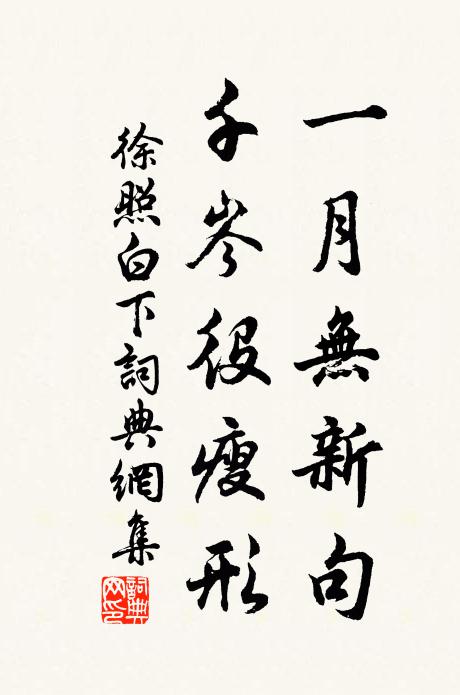 一月無新句
千岑役瘦形
徐照白下詞典網集
詞典網印